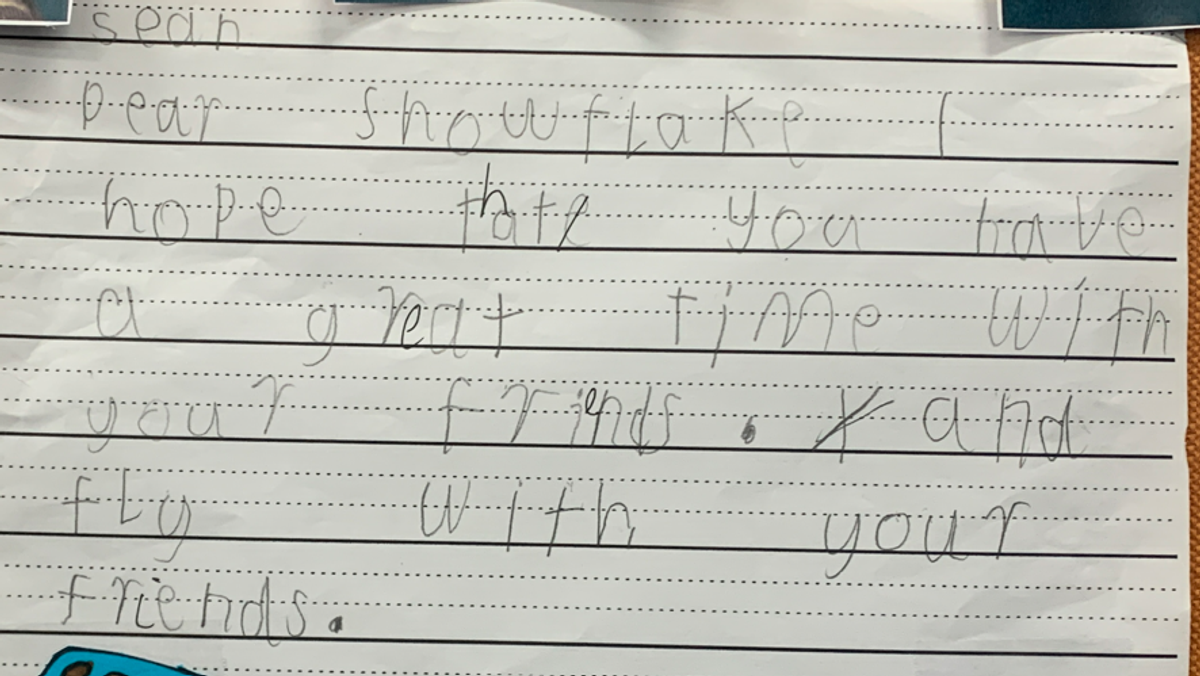 sean
Dear snowflake I
hope thate you have
a great time with
your friends. and
fly with your
friends.